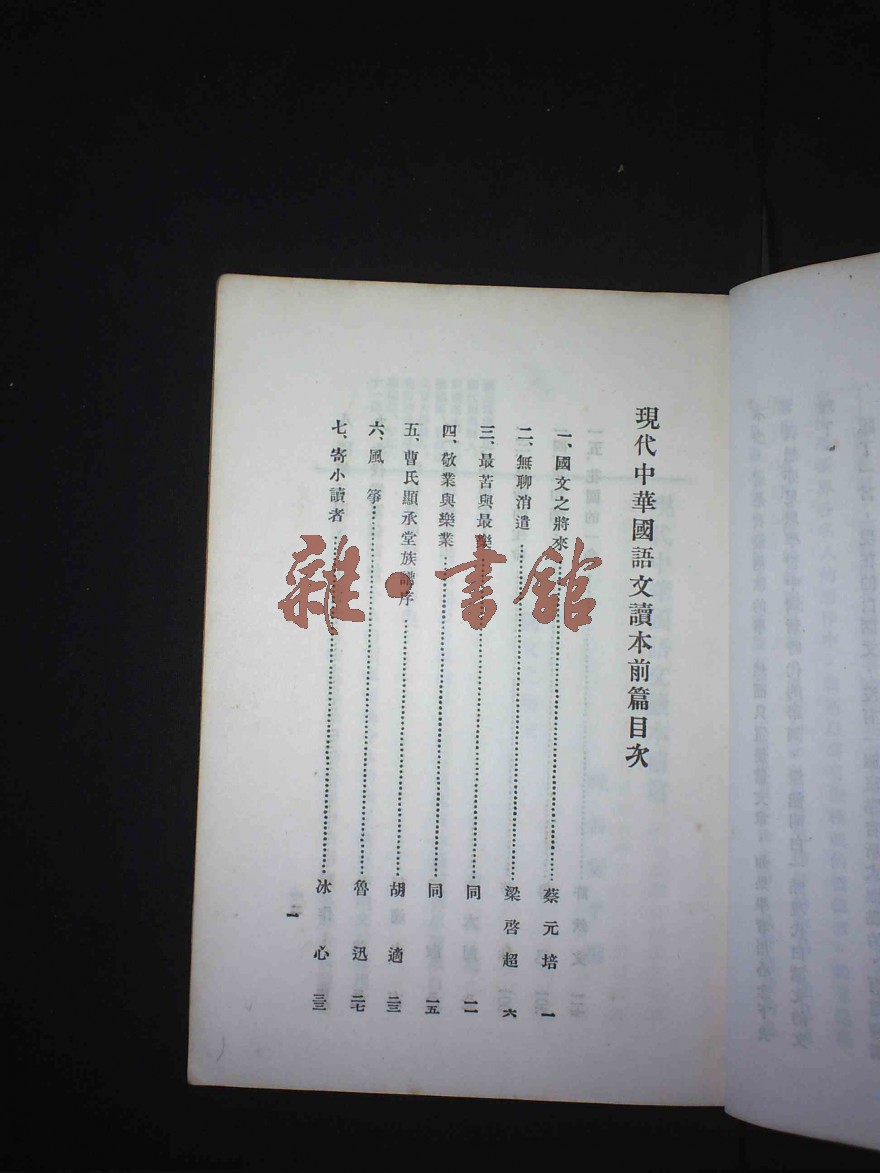 現代中華國語文讀本前篇目次
一、國文之將來……蔡元培 一
二、無聊消遣……梁啓超 六
三、最苦與最樂……同 一一
四、敬業與樂業……同 一五
五、曹氏顯承堂族譜序……胡適 二三
六、風箏……魯迅 二七
七、寄小讀者……冰心 三三
一
雜·書館